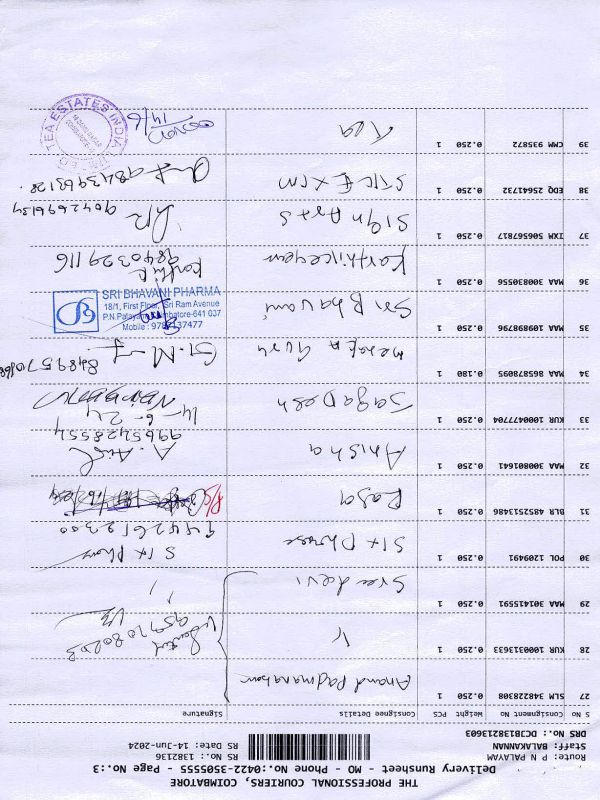 THE PROFESSIONAL COURIERS, COIMBATORE
Delivery Runsheet - MO - Phone No.:0422-3505555 - Page No.:3
Route: P N PALAYAM RS No.: 1382136
Staff: BALAKANNAN RS Date: 14-Jun-2024
DRS No.: DCJB138213603
S No Consignment No Weight PCS Consignee Details Signature
27 SLM 348228308 0.250 1 Anand Padmanaban
28 KUR 1000313633 0.250 1 "
9597080203
29 MAA 301415591 0.250 1 Sreedevi "
30 POL 1209491 0.250 1 Six Phrase Six Phrase
9442612300
31 BLR 4852513486 0.250 1 Raja
32 MAA 300801641 0.250 1 Anisha A.
9965428554
33 KUR 1000477704 0.250 1 Jagadesh
14-6-24
34 MAA 865878095 0.180 1 Guru G.M
35 MAA 109898796 0.250 1 Sri Bhavani
SRI BHAVANI PHARMA
18/1, First Floor, Sri Ram Avenue
P.N.Palayam, Coimbatore-641 037
36 MAA 300830556 0.250 1 Karthikeyan Karthik
9840329116
37 IXM 506567817 0.250 1 Sign Arts
9042696134
38 EDQ 25641732 0.250 1 STIC EXIM
9843963128
39 CMM 935872 0.250 1 Tea
14/6
TEA ESTATES INDIA